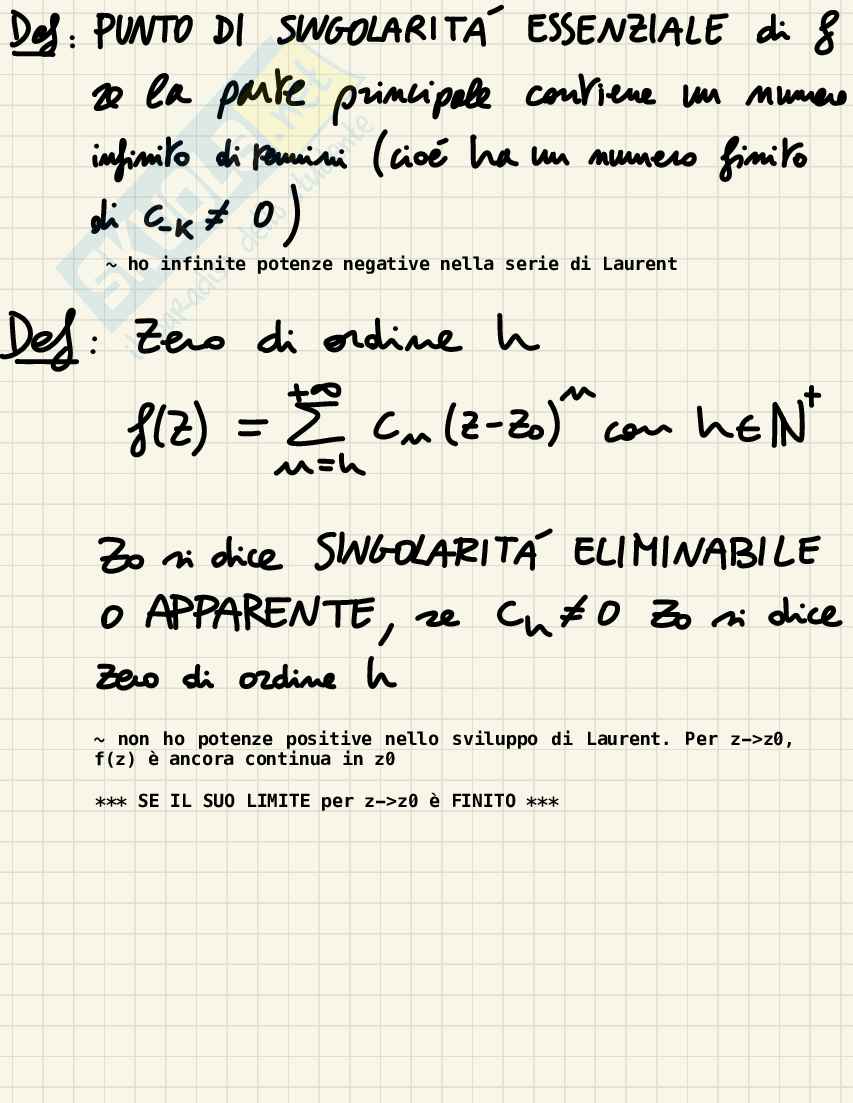 Def: PUNTO DI SINGOLARITÁ ESSENZIALE di f
se la parte principale contiene un numero
infinito di termini (cioé ha un numero finito
di c₋ₖ ≠ 0)
~ ho infinite potenze negative nella serie di Laurent
Def: Zero di ordine h
f(z) = ∑_{n=h}^{+∞} cₙ (z-z₀)ⁿ con h∈ℕ⁺
z₀ si dice SINGOLARITÁ ELIMINABILE
O APPARENTE, se cₕ ≠ 0 z₀ si dice
zero di ordine h
~ non ho potenze positive nello sviluppo di Laurent. Per z->z0,
f(z) è ancora continua in z0
*** SE IL SUO LIMITE per z->z0 è FINITO ***
SKUOLA.net
il paradiso dello studente